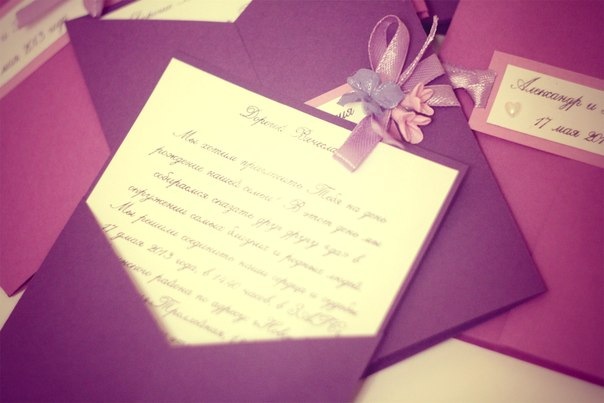 Дорогой
Мы хотим пригласить Тебя на день
рождение нашей семьи! В этот день мы
собираемся сказать друг другу «да» в
окружении самых близких и родных людей.
Мы решили соединить наши сердца и судьбы
17 мая 2013 года, в 14:40 часов в ЗАГСе
района по адресу:
Александр и
17 мая 201
мая 2013 года